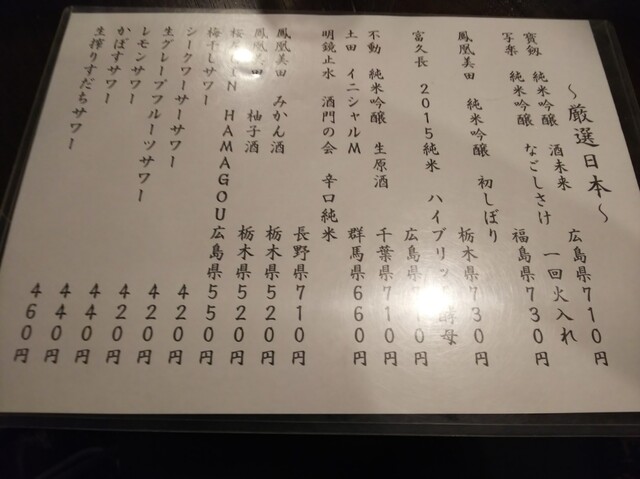 ～厳選日本～
寶剱 純米吟醸 酒未来 広島県710円
写楽 純米吟醸 なごしさけ 一回火入れ
福島県730円
鳳凰美田 純米吟醸 初しぼり
栃木県730円
富久長 2015純米 ハイブリッ 酵母
広島県710円
不動 純米吟醸 生原酒 千葉県710円
土田 イニシャルM 群馬県660円
明鏡止水 酒門の会 辛口純米
長野県710円
鳳凰美田 みかん酒 栃木県520円
鳳凰美田 柚子酒 栃木県520円
桜尾GIN HAMAGOU 広島県550円
梅干しサワー 420円
シークワーサーサワー 420円
生グレープフルーツサワー 420円
レモンサワー 440円
かぼすサワー 440円
生搾りすだちサワー 460円